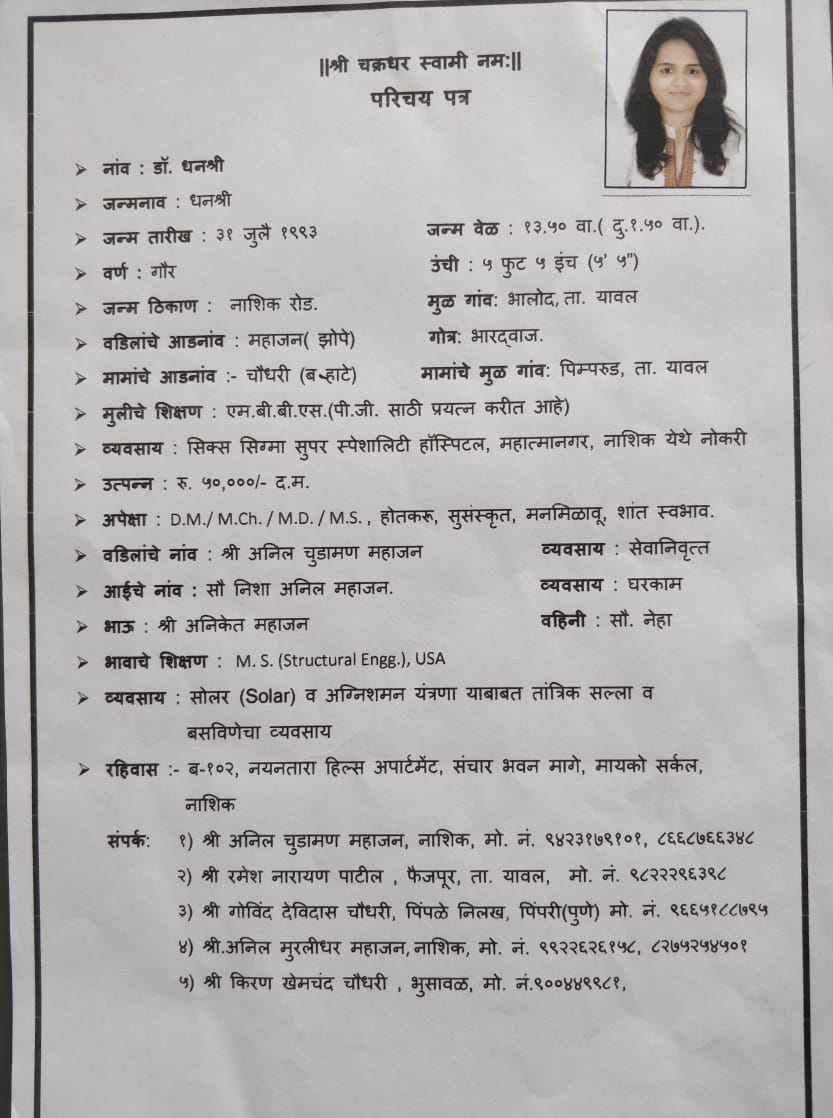 ||श्री चक्रधर स्वामी नमः||
परिचय पत्र
➤ नांव : डॉ. धनश्री
➤ जन्मनाव : धनश्री
➤ जन्म तारीख : ३१ जुलै १९९३ जन्म वेळ : १३.५० वा.( दु.१.५० वा.).
➤ वर्ण : गौर उंची : ५ फुट ५ इंच (५' ५")
➤ जन्म ठिकाण : नाशिक रोड. मुळ गांव: भालोद, ता. यावल
➤ वडिलांचे आडनांव : महाजन( झोपे) गोत्र: भारद्वाज.
➤ मामांचे आडनांव :- चौधरी (बऱ्हाटे) मामांचे मुळ गांव: पिम्परुड, ता. यावल
➤ मुलीचे शिक्षण : एम.बी.बी.एस.(पी.जी. साठी प्रयत्न करीत आहे)
➤ व्यवसाय : सिक्स सिग्मा सुपर स्पेशालिटी हॉस्पिटल, महात्मानगर, नाशिक येथे नोकरी
➤ उत्पन्न : रु. ५०,०००/- द.म.
➤ अपेक्षा : D.M./ M.Ch. / M.D. / M.S. , होतकरू, सुसंस्कृत, मनमिळावू, शांत स्वभाव.
➤ वडिलांचे नांव : श्री अनिल चुडामण महाजन व्यवसाय : सेवानिवृत्त
➤ आईचे नांव : सौ निशा अनिल महाजन. व्यवसाय : घरकाम
➤ भाऊ : श्री अनिकेत महाजन वहिनी : सौ. नेहा
➤ भावाचे शिक्षण : M. S. (Structural Engg.), USA
➤ व्यवसाय : सोलर (Solar) व अग्निशमन यंत्रणा याबाबत तांत्रिक सल्ला व
बसविणेचा व्यवसाय
➤ रहिवास :- ब-१०२, नयनतारा हिल्स अपार्टमेंट, संचार भवन मागे, मायको सर्कल,
नाशिक
संपर्क: १) श्री अनिल चुडामण महाजन, नाशिक, मो. नं. ९४२३१७९१०१, ८६६८७६६३४८
२) श्री रमेश नारायण पाटील , फैजपूर, ता. यावल, मो. नं. ९८२२२९६३९८
३) श्री गोविंद देविदास चौधरी, पिंपळे निलख, पिंपरी(पुणे) मो. नं. ९६६५१८८७९५
४) श्री.अनिल मुरलीधर महाजन, नाशिक, मो. नं. ९९२२६२६१५८, ८२७५२५४५०१
५) श्री किरण खेमचंद चौधरी , भुसावळ, मो. नं.९००४४९९८१,